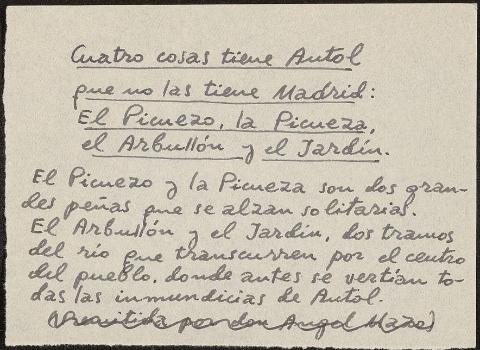 Cuatro cosas tiene Autol
que no las tiene Madrid:
El Picuezo, la Picueza,
el Arbullón y el Jardín.
El Picuezo y la Picueza son dos gran-
des peñas que se alzan solitarias.
El Arbullón y el Jardín, dos tramos
del río que transcurren por el centro
del pueblo, donde antes se vertían to-
das las inmundicias de Autol.
(Remitida por don Angel Mazo)